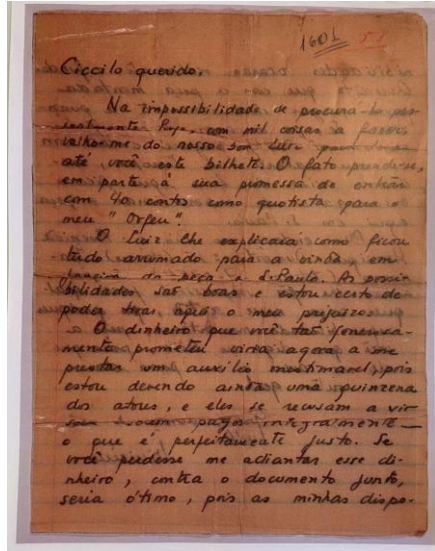 1601 51
Ciccilo querido,
Na impossibilidade de procurá-lo pes-
soalmente hoje, com mil coisas a fazer,
valho-me do nosso bom Luiz para levar
até você este bilhete. O fato prende-se,
em parte, à sua promessa de entrar
com 40 contos como quotista para o
meu "Orfeu".
O Luiz lhe explicará como ficou
tudo arrumado para a vinda em
da peça a S. Paulo. As possi-
bilidades são boas e estou certo de
poder tirar, após o meu prejuízo.
O dinheiro que você tão generosa-
mente prometeu viria agora a me
prestar um auxílio inestimavel, pois
estou devendo ainda uma quinzena
dos atores, e eles se recusam a vir
sem serem pagos integramente —
o que é perfeitamente justo. Se
você pudesse me adiantar esse di-
nheiro, contra o documento junto,
seria ótimo, pois as minhas dispo-